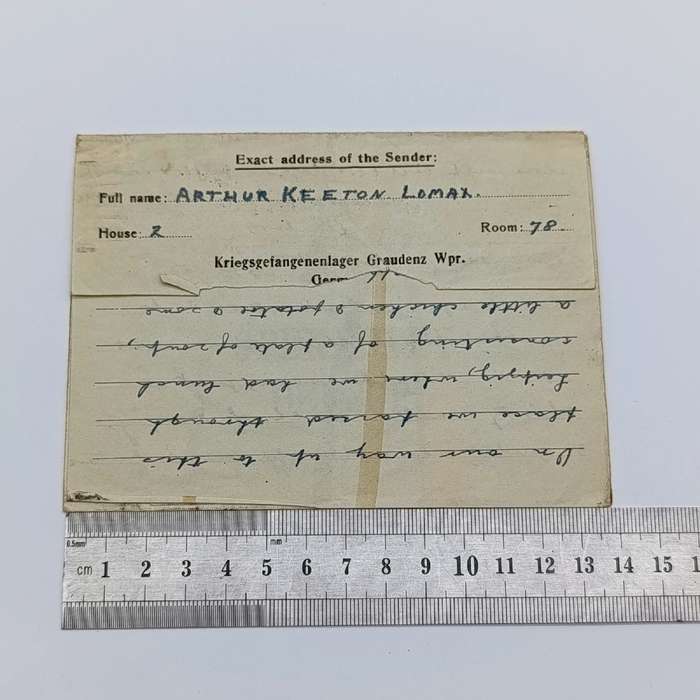 Exact address of the Sender:
Full name: ARTHUR KEETON LOMAX.
House: 2 Room: 78.
Kriegsgefangenenlager Graudenz Wpr.
Germ
On our way up to this
place we passed through
Leipzig, where we had lunch
consisting of a plate of soup,
a little chicken & potatoe & some
0.5mm
mm
cm 1 2 3 4 5 6 7 8 9 10 11 12 13 14 15 1